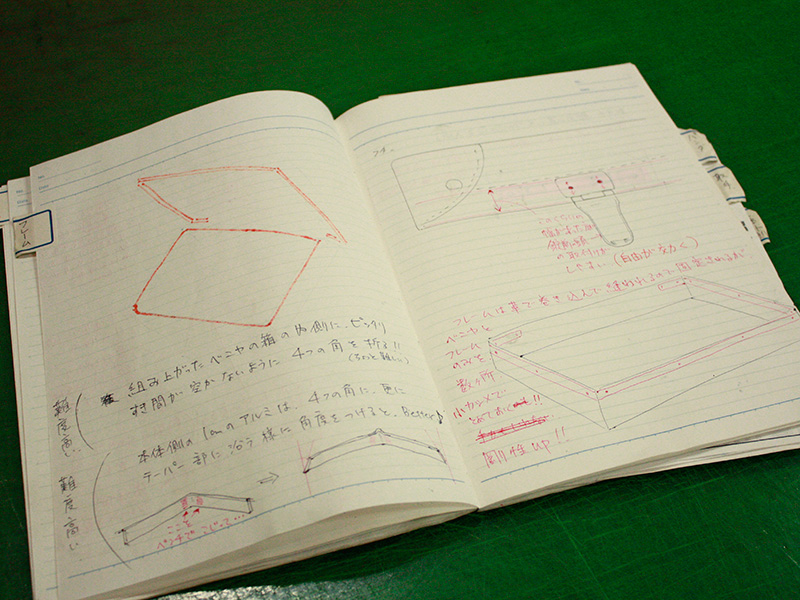 フレーム
組み上がったベニヤの箱の内側に、ピッタリ
時間が空かないように 4つの角を折る!!
(ちょっと難しい)
難度高い
本体側の1cmのアルミは、4つの角に、更に
テーパー部に沿う様に角度をつけると、Better♪
難度高い
ここを
ペンチでこじって…
の取付けが
しやすい (自由が効く)
フレームは革で巻き込んで縫われるので固定されるが
ベニヤと
フレーム
のみを
数ヶ所
小カシメで
とめておく!!
剛性up!!